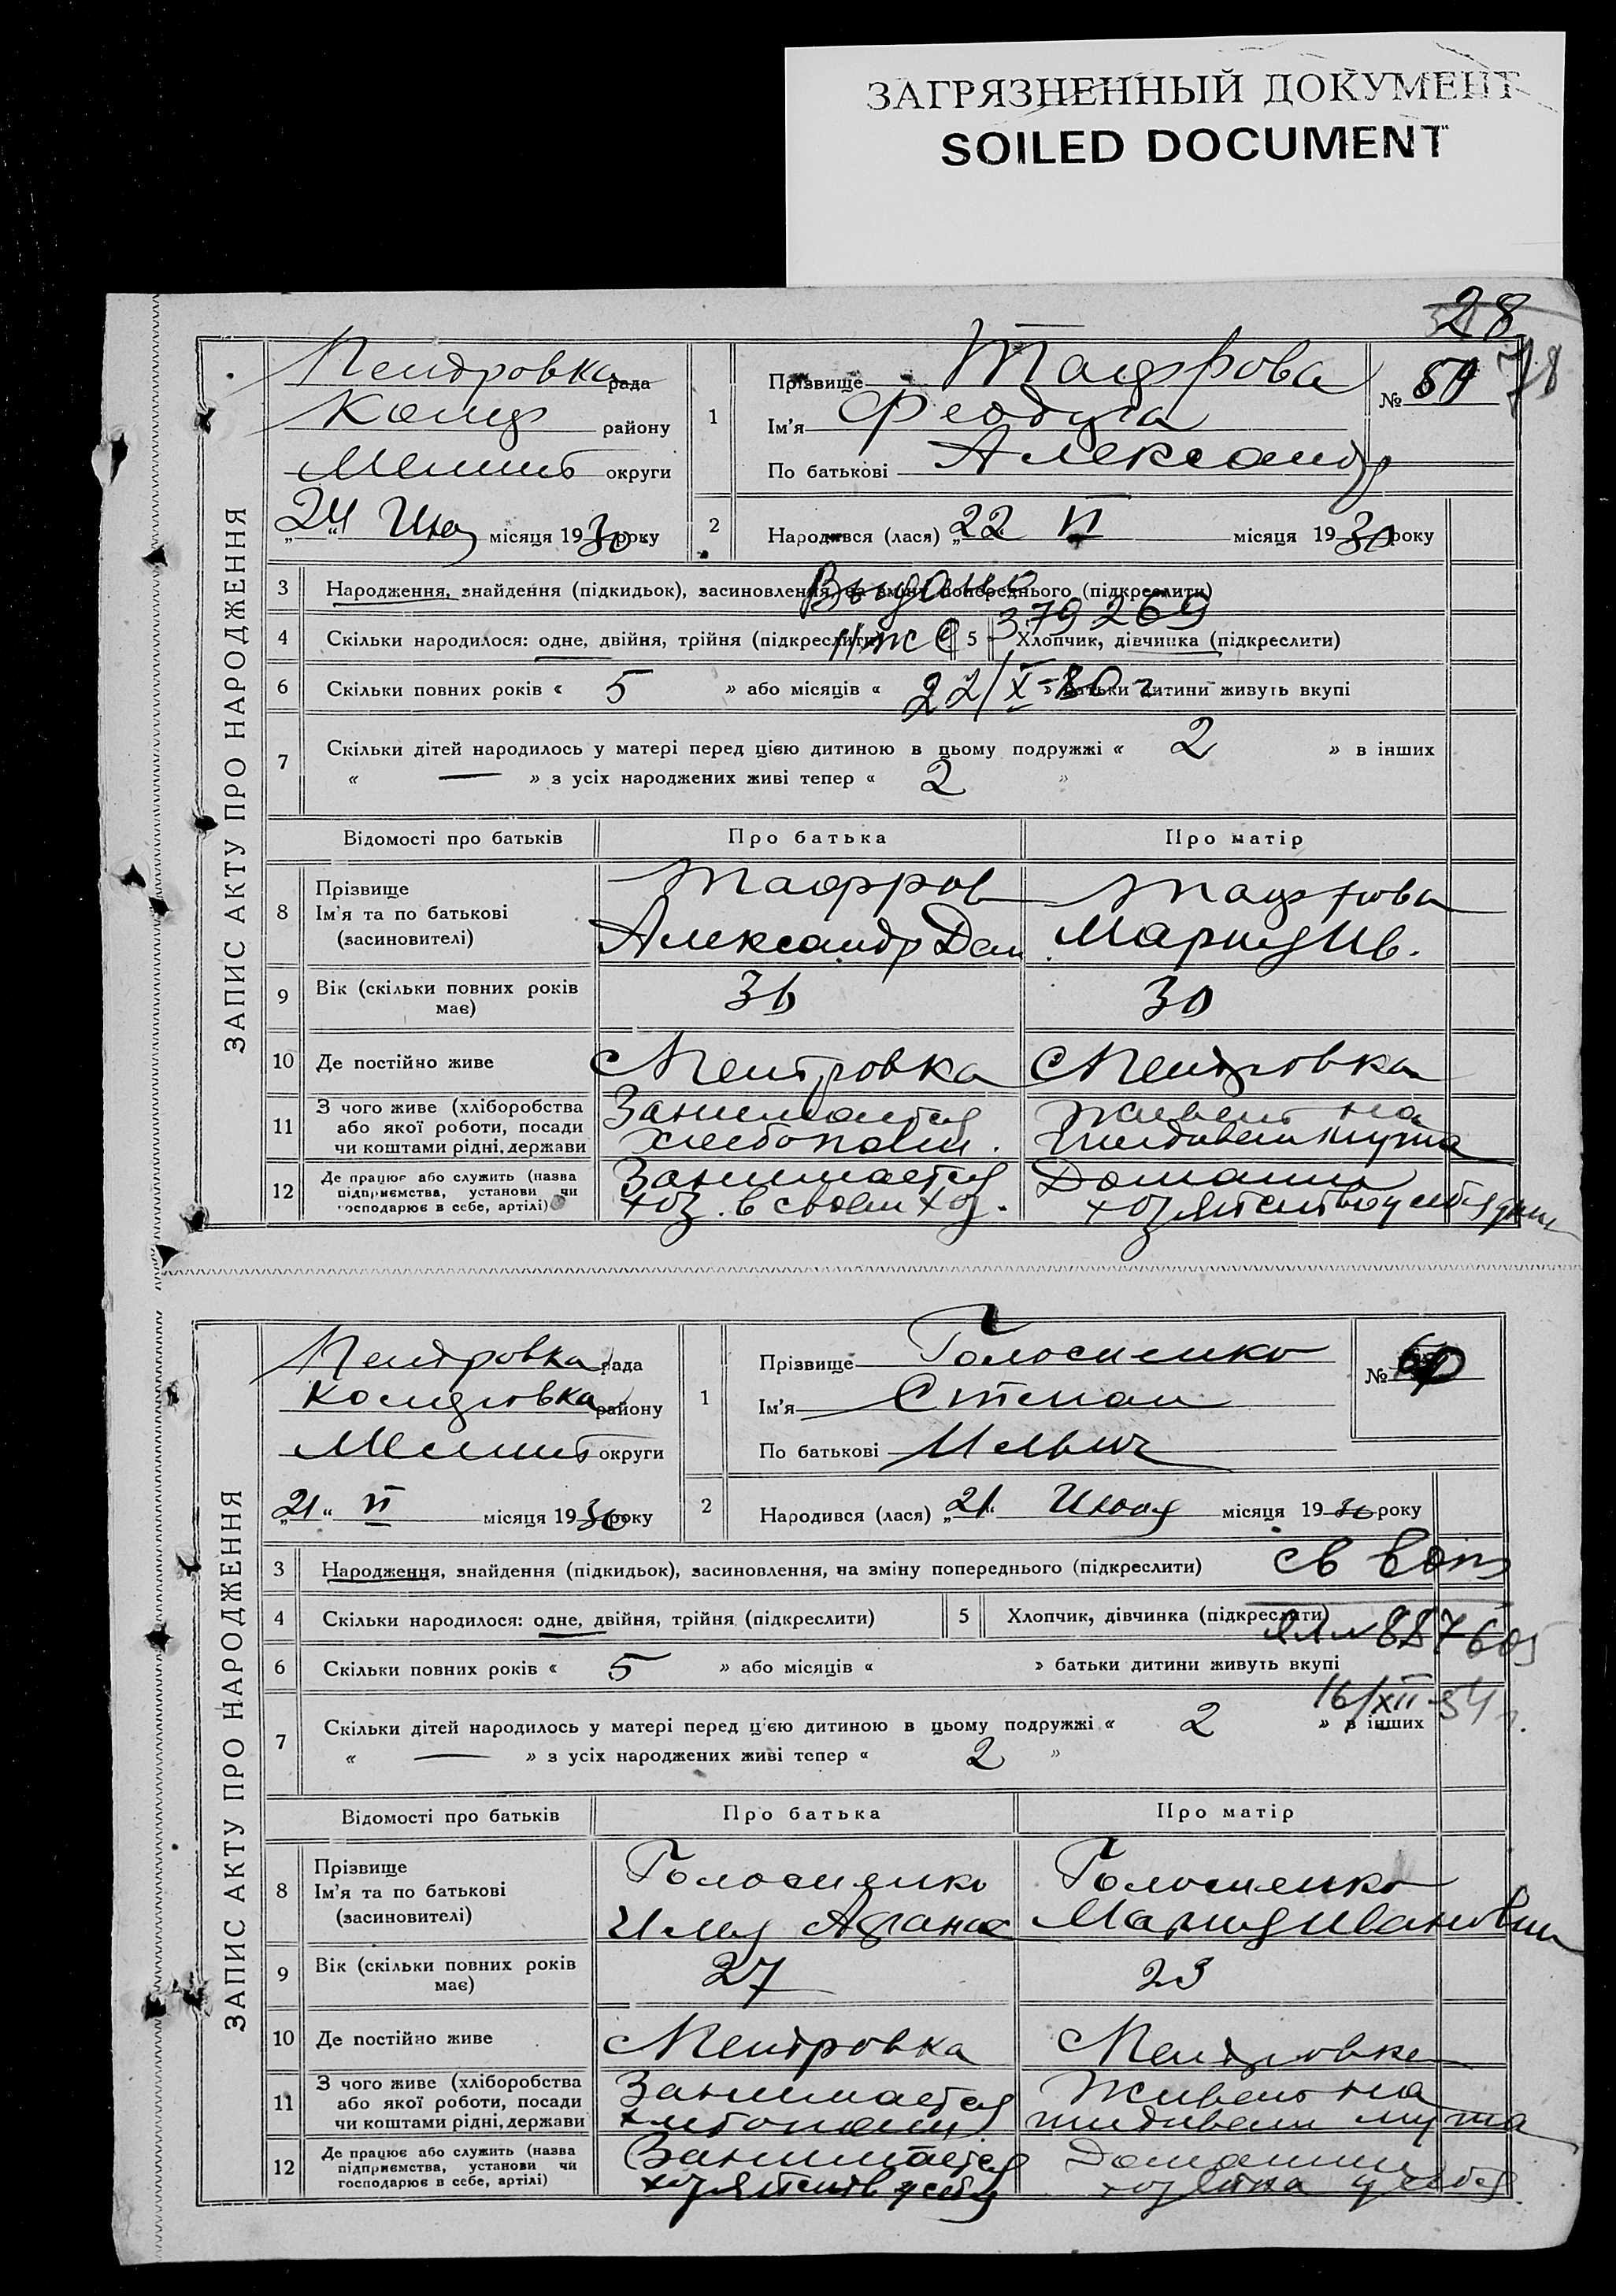 ЗАГРЯЗНЕННЫЙ ДОКУМЕНТ
SOILED DOCUMENT
28
78
ЗАПИС АКТУ ПРО НАРОДЖЕННЯ
Петровка рада
району
Мелит округи
„24“ Июня місяця 1930 року
1
Прізвище Тафрова
Ім'я Феодула
По батькові Александр
№ 59
2
Народився (лася) „22“ VI місяця 1930 року
3 Народження, знайдення (підкидьок), засиновлення, на зміну попереднього (підкреслити)
Выдано
379269
4 Скільки народилося: одне, двійня, трійня (підкреслити)
5 Хлопчик, дівчинка (підкреслити)
6 Скільки повних років « 5 » або місяців « » батьки дитини живуть вкупі
22/X-80 г
7 Скільки дітей народилось у матері перед цією дитиною в цьому подружжі « 2 » в інших
« — » з усіх народжених живі тепер « 2 »
Відомості про батьків Про батька Про матір
8 Прізвище
Ім'я та по батькові
(засиновителі)
Тафров
Александр Дан
Тафрова
Мария Ив.
9 Вік (скільки повних років
має)
36
30
10 Де постійно живе
с Петровка
с Петровка
11 З чого живе (хліборобства
або якої роботи, посади
чи коштами рідні, держави
Занимается
хлебопаш.
Живет на
иждивении мужа
12 Де працює або служить (назва
підприємства, установи чи
господарює в себе, артілі)
Занимается
хоз. в своем хоз.
Домашн
ЗАПИС АКТУ ПРО НАРОДЖЕННЯ
Петровка рада
району
Мелит округи
„21“ VI місяця 1930 року
1
Прізвище Голосненко
Ім'я Степан
По батькові Ильич
№ 60
2
Народився (лася) „21“ Июня місяця 1930 року
3 Народження, знайдення (підкидьок), засиновлення, на зміну попереднього (підкреслити)
4 Скільки народилося: одне, двійня, трійня (підкреслити)
5 Хлопчик, дівчинка (підкреслити)
887605
6 Скільки повних років « 5 » або місяців « » батьки дитини живуть вкупі
16/XII-54 г.
7 Скільки дітей народилось у матері перед цією дитиною в цьому подружжі « 2 » в інших
« — » з усіх народжених живі тепер « 2 »
Відомості про батьків Про батька Про матір
8 Прізвище
Ім'я та по батькові
(засиновителі)
Голосненко
Илья Афанас
Голосненко
Мария Ивановна
9 Вік (скільки повних років
має)
27
23
10 Де постійно живе
с Петровка
с Петровка
11 З чого живе (хліборобства
або якої роботи, посади
чи коштами рідні, держави
Занимается
хлебопаш
Живет на
иждивении мужа
12 Де працює або служить (назва
підприємства, установи чи
господарює в себе, артілі)
Занимается
Домашн